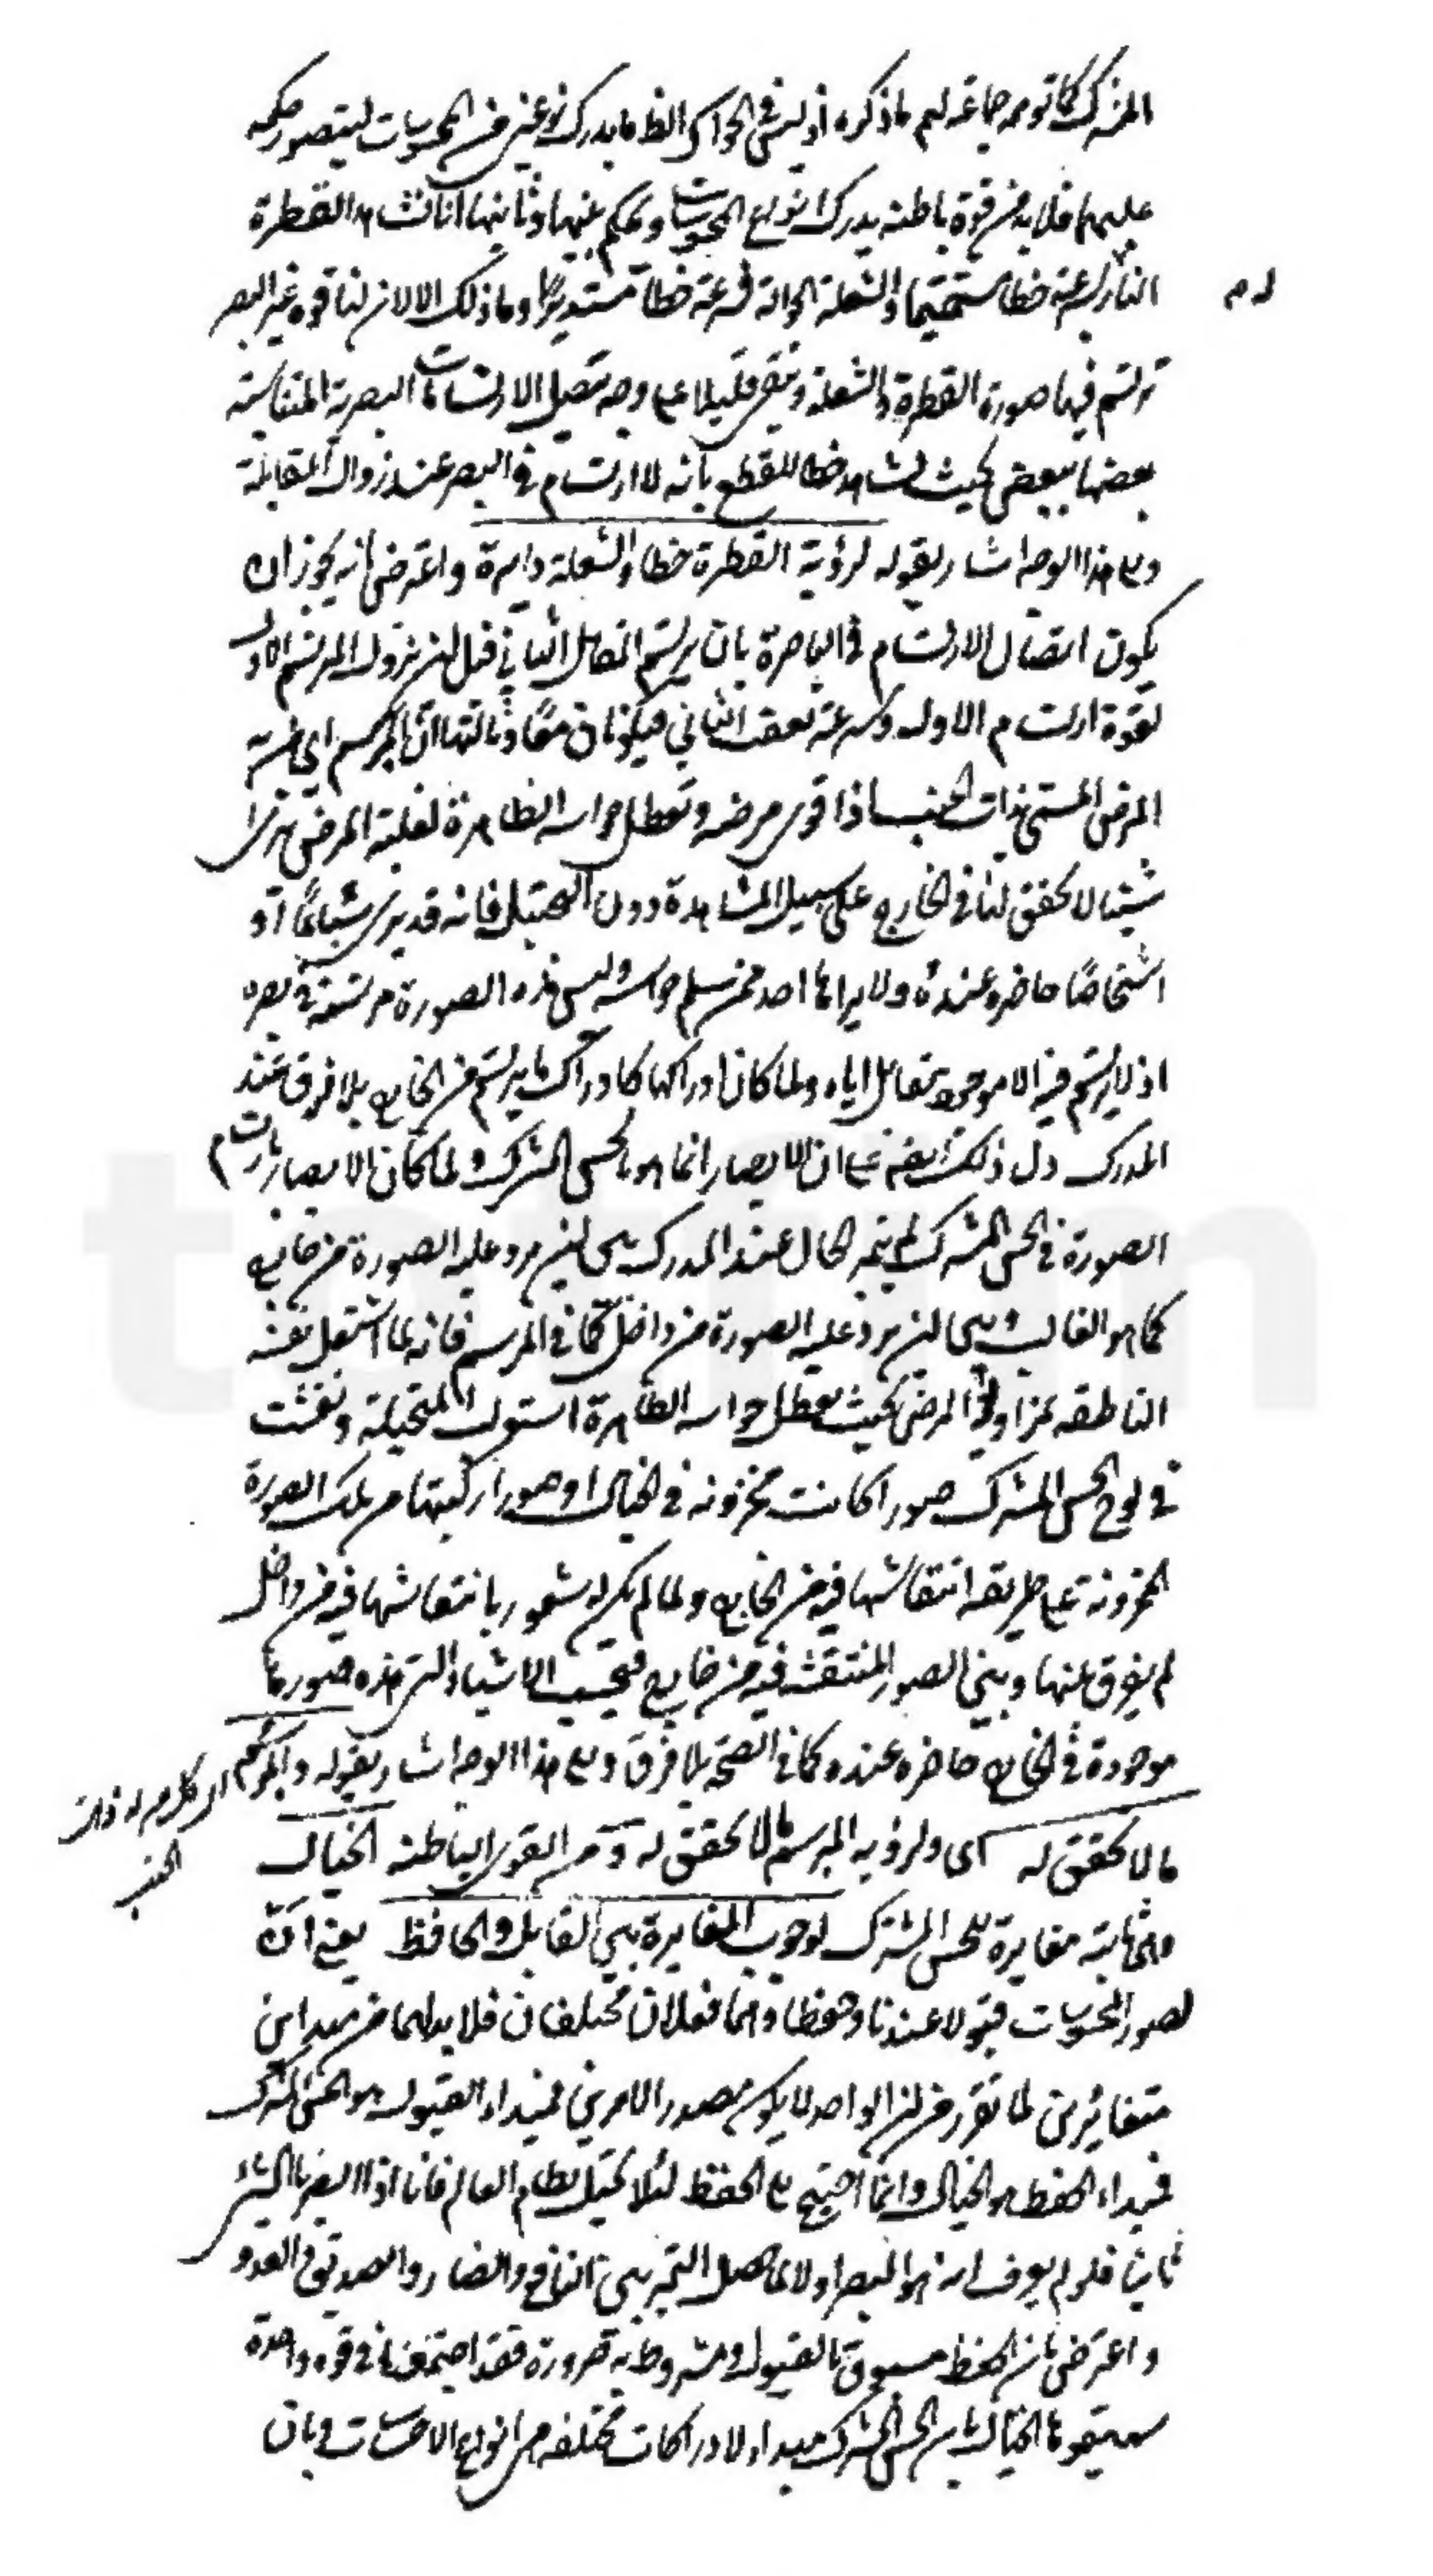 المشترك كما توهمه جماعة لهم ما ذكره اذ ليس في الحواس الظ ما يدرك نوعين من المحسوسات ليتصور حكمه
عليهما فلا بد من قوة باطنة يدرك انواع المحسوسات ويحكم بينها وثانيها انا نشاهد القطرة
النازلة بسرعة خطا مستقيما والشعلة الجوالة بسرعة خطا مستديرا وما ذلك الا لان لنا قوة غير البصر
ترتسم فيها صورة القطرة والشعلة وتبقى قليلا على وجه تتصل الارتسامات البصرية المتتالية
بعضها ببعض بحيث نشاهد خطا للقطع بانه لا ارتسام في البصر عند زوال المقابلة
والى هذا الوجه اشار بقوله لرؤية القطرة خطا والشعلة دايرة واعترض بانه يجوز ان
يكون اتصال الارتسام في الباصرة بان يرتسم المقابل الثاني قبل ان يزول المرتسم الاول
لقوة ارتسام الاول وسرعة تعقب الثاني فيكونان معا وثالثها ان المبرسم اي صاحب
المرض المسمى بذات الجنب اذا قوى مرضه وتعطل حواسه الظاهرة لغلبة المرض يرى
شيئا لا تحقق لها في الخارج على سبيل المشاهدة دون التخيل فانه قد يرى سباعا او
اشخاصا حاضرة عنده ولا يراها احد ممن سلم حواسه وليس هذه الصورة مرتسمة في بصره
اذ لا يرتسم فيه الا موجود مقابل اياه ولما كان ادراكها كادراك ما يرتسم من الخارج بلا فرق عند
المدرك دل ذلك ايضا على ان الابصار انما هو بالحس المشترك ولما كان الابصار بارتسام
الصورة في الحس المشترك لم يتميز الحال عند المدرك بين ان يرد عليه الصورة من خارج
كما هو الغالب وبين ان يرد عليه الصورة من داخل كما في المبرسم فانه لما اشتغل نفسه
الناطقة بمزاولة المرض بحيث تعطل حواسه الظاهرة استولت المتخيلة ونقشت
في لوح الحس المشترك صورا كانت مخزونة في الخيال او صورا ركبتها من تلك الصورة
المخزونة على طريقة انتقاشها فيه من الخارج ولما لم يكن له شعور بانتقاشها فيه من داخل
لم يفرق بينها وبين الصور المنتقشة فيه من خارج فيحسب الاشياء التي هذه صورها
موجودة في الخارج حاضرة عنده كما في الصحة بلا فرق والى هذا الوجه اشار بقوله والمبرسم
ما لا تحقق له اى ولرؤية المبرسم ما لا تحقق له ومن القوى الباطنة الخيال
واثباته مغايرة للحس المشترك لوجوب المغايرة بين القابل والحافظ يعني ان
لصور المحسوسات قبولا عندنا وحفظا وهما فعلان مختلفان فلا بد لهما من مبداين
متغايرين لما تقرر من ان الواحد لا يكون مصدر الامرين فمبداء القبول هو الحس المشترك
فمبداء الحفظ هو الخيال وانما احتيج الى الحفظ لئلا يختل نظام العالم فانا اذا ابصرنا الشئ
ثانيا فلو لم يعرف انه هو المبصر اولا لما حصل التميز بين النافع والضار والصديق والعدو
واعترض بان الحفظ مسبوق بالقبول ومشروط به ضرورة فقد اجتمعا في قوة واحدة
سميتموها الخيال بان الحس المشترك مبداء لادراكات مختلفة هي انواع الاحساسات وبان